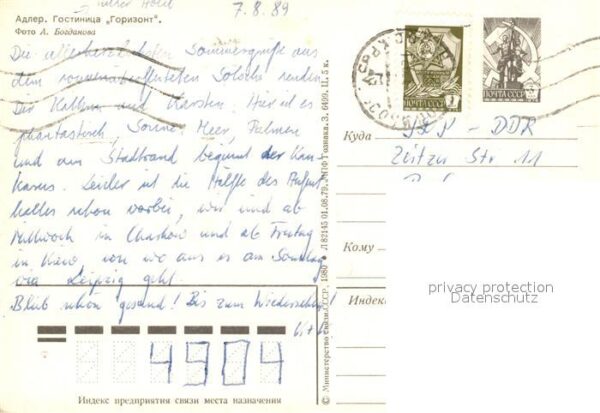 7.8.89
Адлер. Гостиница „Горизонт".
Фото А. Богданова
Die allerherzlichsten Sommergrüße aus
dem Sotschi senden
Dir Kathrin und Karsten. Hier ist es
phantastisch, Sonne, Meer, Palmen
und am Stadtrand beginnt der Kau-
kasus. Leider ist die Hälfte des Aufent-
haltes schon vorbei, wir sind ab
Mittwoch in Charkow und ab Freitag
in Kiew von wo aus es am Sonntag
via Leipzig geht.
Bleib schön gesund! Bis zum Wiedersehen!
© Министерство связи СССР, 1980 Л 82145 01.08.79. ППФ Гознака. З. 6499. Ц. 5 к.
ПОЧТА СССР
ПОЧТА СССР
Куда
DDR
Zeitzer Str 11
Кому
privacy protection
Datenschutz
Индекс
4904
Индекс предприятия связи места назначения